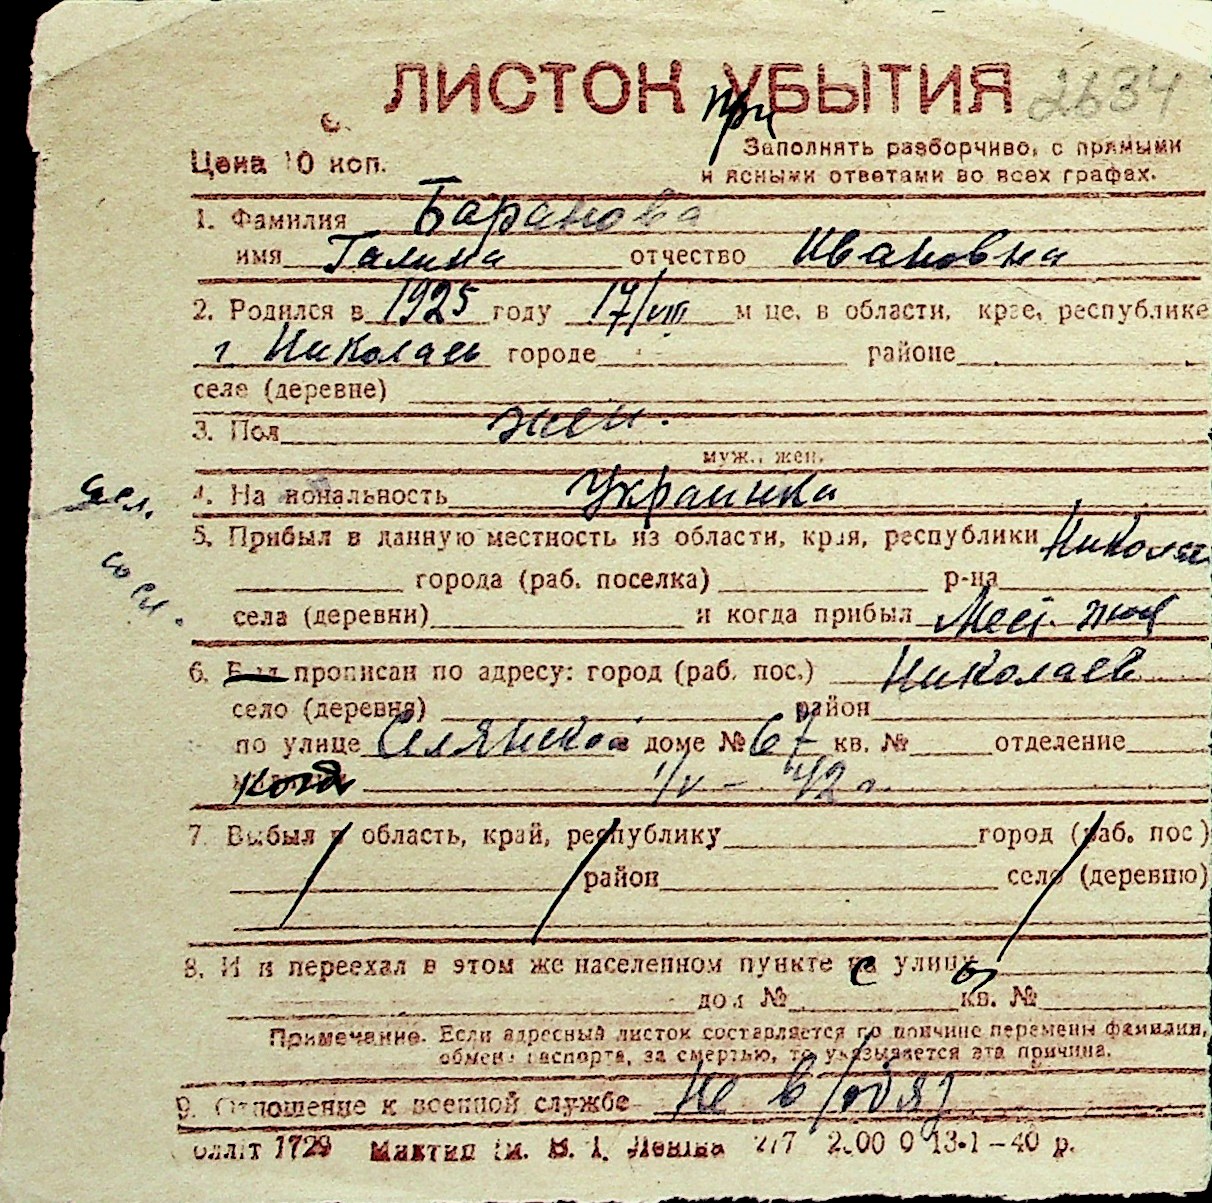 ЛИСТОК УБЫТИЯ 2634
При
Цена 10 коп.
Заполнять разборчиво, с прямыми
и ясными ответами во всех графах.
1. Фамилия Баранова
имя Галина отчество Ивановна
2. Родился в 1925 году 17/VIII м це, в области, крае, республике
г Николаев городе районе
селе (деревне)
3. Пол жен.
муж., жен.
4. Национальность Украинка
5. Прибыл в данную местность из области, края, республики Никола
города (раб. поселка) р-на
села (деревни) и когда прибыл Мест. жит
6. Был прописан по адресу: город (раб. пос.) Николаев
село (деревня) район
по улице Селянской доме № 67 кв. № отделение
когда 1/V – 42 г.
7. Выбыл в область, край, республику город (раб. пос)
район село (деревню)
8. Или переехал в этом же населенном пункте с улицы
дом № кв. №
Примечание. Если адресный листок составляется по причине перемены фамилии,
обмена паспорта, за смертью, то указывается эта причина.
9. Отношение к военной службе Не в/обяз
1729 им. В. І. Леніна 217 13-1–40 р.